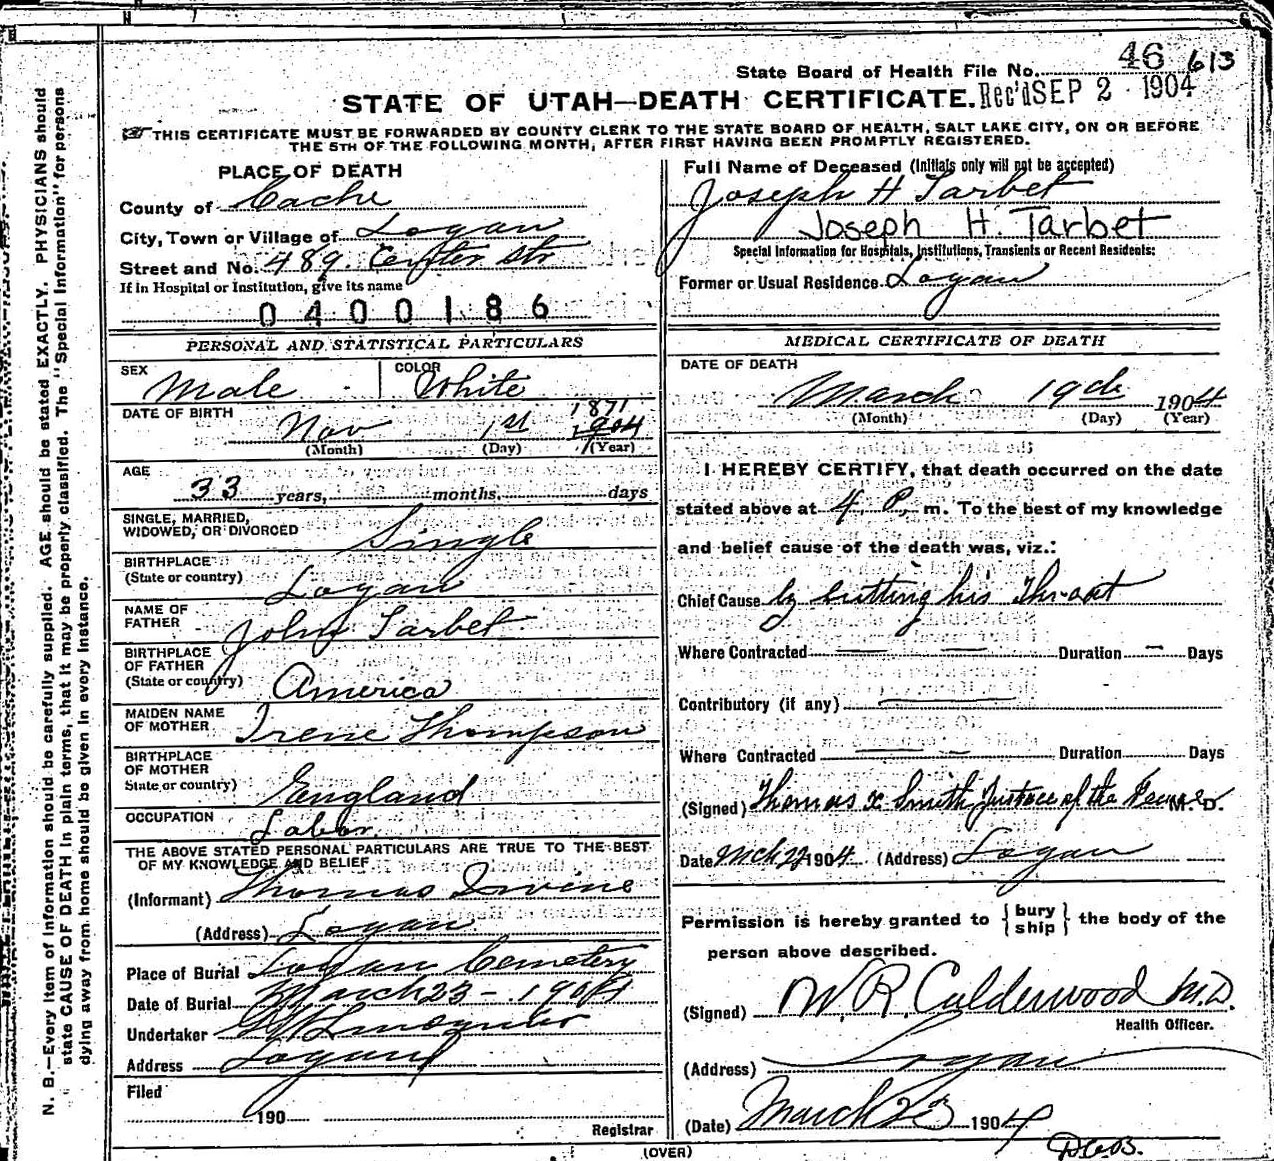 46 613
State Board of Health File No.
Rec'd SEP 2 1904
STATE OF UTAH—DEATH CERTIFICATE.
THIS CERTIFICATE MUST BE FORWARDED BY COUNTY CLERK TO THE STATE BOARD OF HEALTH, SALT LAKE CITY, ON OR BEFORE
THE 5TH OF THE FOLLOWING MONTH, AFTER FIRST HAVING BEEN PROMPTLY REGISTERED.
N. B.—Every item of information should be carefully supplied. AGE should be stated EXACTLY. PHYSICIANS should
state CAUSE OF DEATH in plain terms, that it may be properly classified. The "Special Information" for persons
dying away from home should be given in every instance.
PLACE OF DEATH
County of Cache
City, Town or Village of Logan
Street and No. 489. Center Str
If in Hospital or Institution, give its name
0400186
PERSONAL AND STATISTICAL PARTICULARS
SEX Male COLOR White
DATE OF BIRTH
1871
Nov 1st 1904
(Month) (Day) (Year)
AGE
33 years, months, days
SINGLE, MARRIED,
WIDOWED, OR DIVORCED Single
BIRTHPLACE
(State or country) Logan
NAME OF
FATHER John Tarbet
BIRTHPLACE
OF FATHER
(State or country) America
MAIDEN NAME
OF MOTHER Irene Thompson
BIRTHPLACE
OF MOTHER
State or country) England
OCCUPATION Labor
THE ABOVE STATED PERSONAL PARTICULARS ARE TRUE TO THE BEST
OF MY KNOWLEDGE AND BELIEF
(Informant) Thomas Irvine
(Address) Logan
Place of Burial Logan Cemetery
Date of Burial March 23 - 1904
Undertaker
Address Logan
Filed
190
Registrar
Full Name of Deceased (Initials only will not be accepted)
Joseph H Tarbet
Joseph H. Tarbet
Special Information for Hospitals, Institutions, Transients or Recent Residents:
Former or Usual Residence Logan
MEDICAL CERTIFICATE OF DEATH
DATE OF DEATH
March 19th 1904
(Month) (Day) (Year)
I HEREBY CERTIFY, that death occurred on the date
stated above at 4 P. m. To the best of my knowledge
and belief cause of the death was, viz.:
Chief Cause by cutting his Throat
Where Contracted — — Duration — Days
Contributory (if any) —
Where Contracted — — Duration Days
(Signed) Thomas X Smith Justace of the Peace M. D.
Date Mch 22 1904 (Address) Logan
Permission is hereby granted to { bury ship } the body of the
person above described.
(Signed) W. R. Calderwood M.D.
Health Officer.
(Address) Logan
(Date) March 23 1904
(OVER)